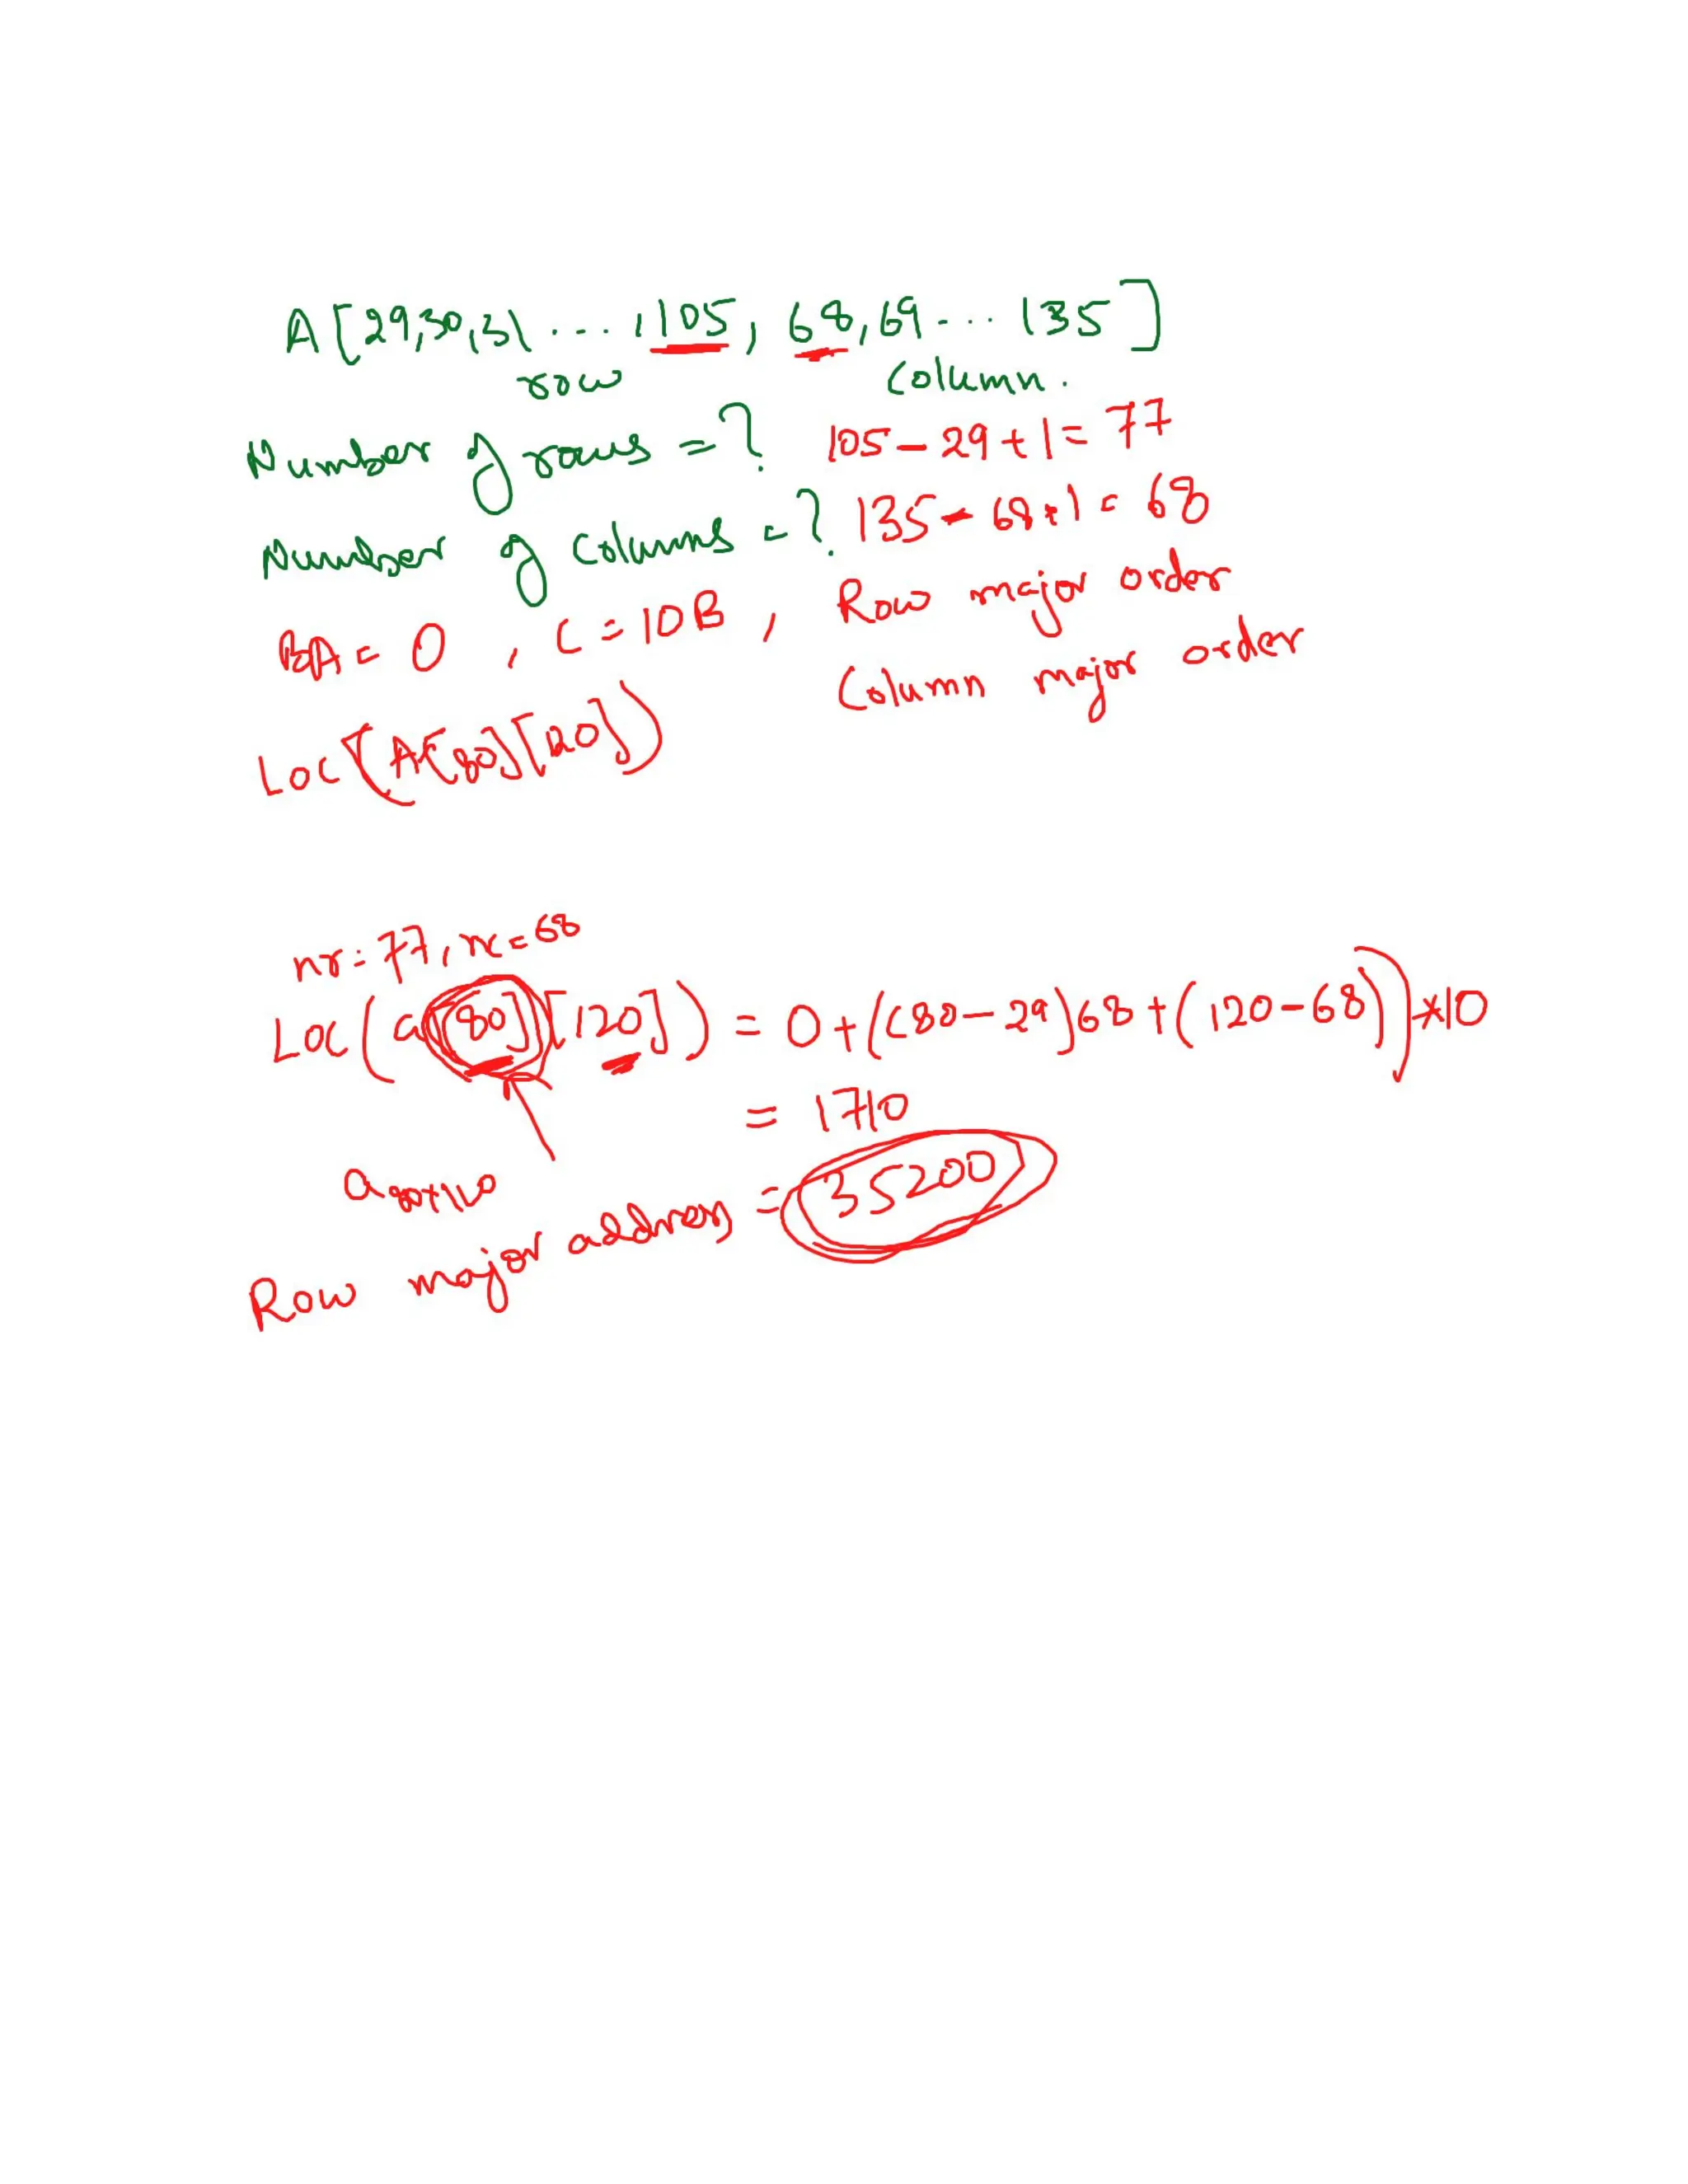 A[29,30,31 ... 105, 68,69 ... 135]
row column.
Number of rows = ? 105 - 29 + 1 = 77
Number of columns = ? 135 - 68 + 1 = 68
BA = 0 , C = 10B , Row major order
Column major order
Loc(A[80][120])
nr = 77, nc = 68
Loc(a[80][120]) = 0 + ((80 - 29)68 + (120 - 68)) * 10
= 1710
Row major address = 35200